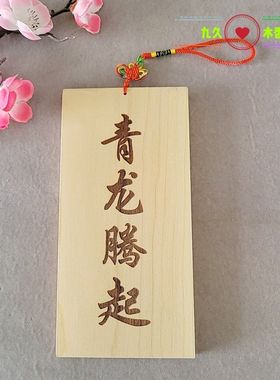 九久 木香
青龙腾起